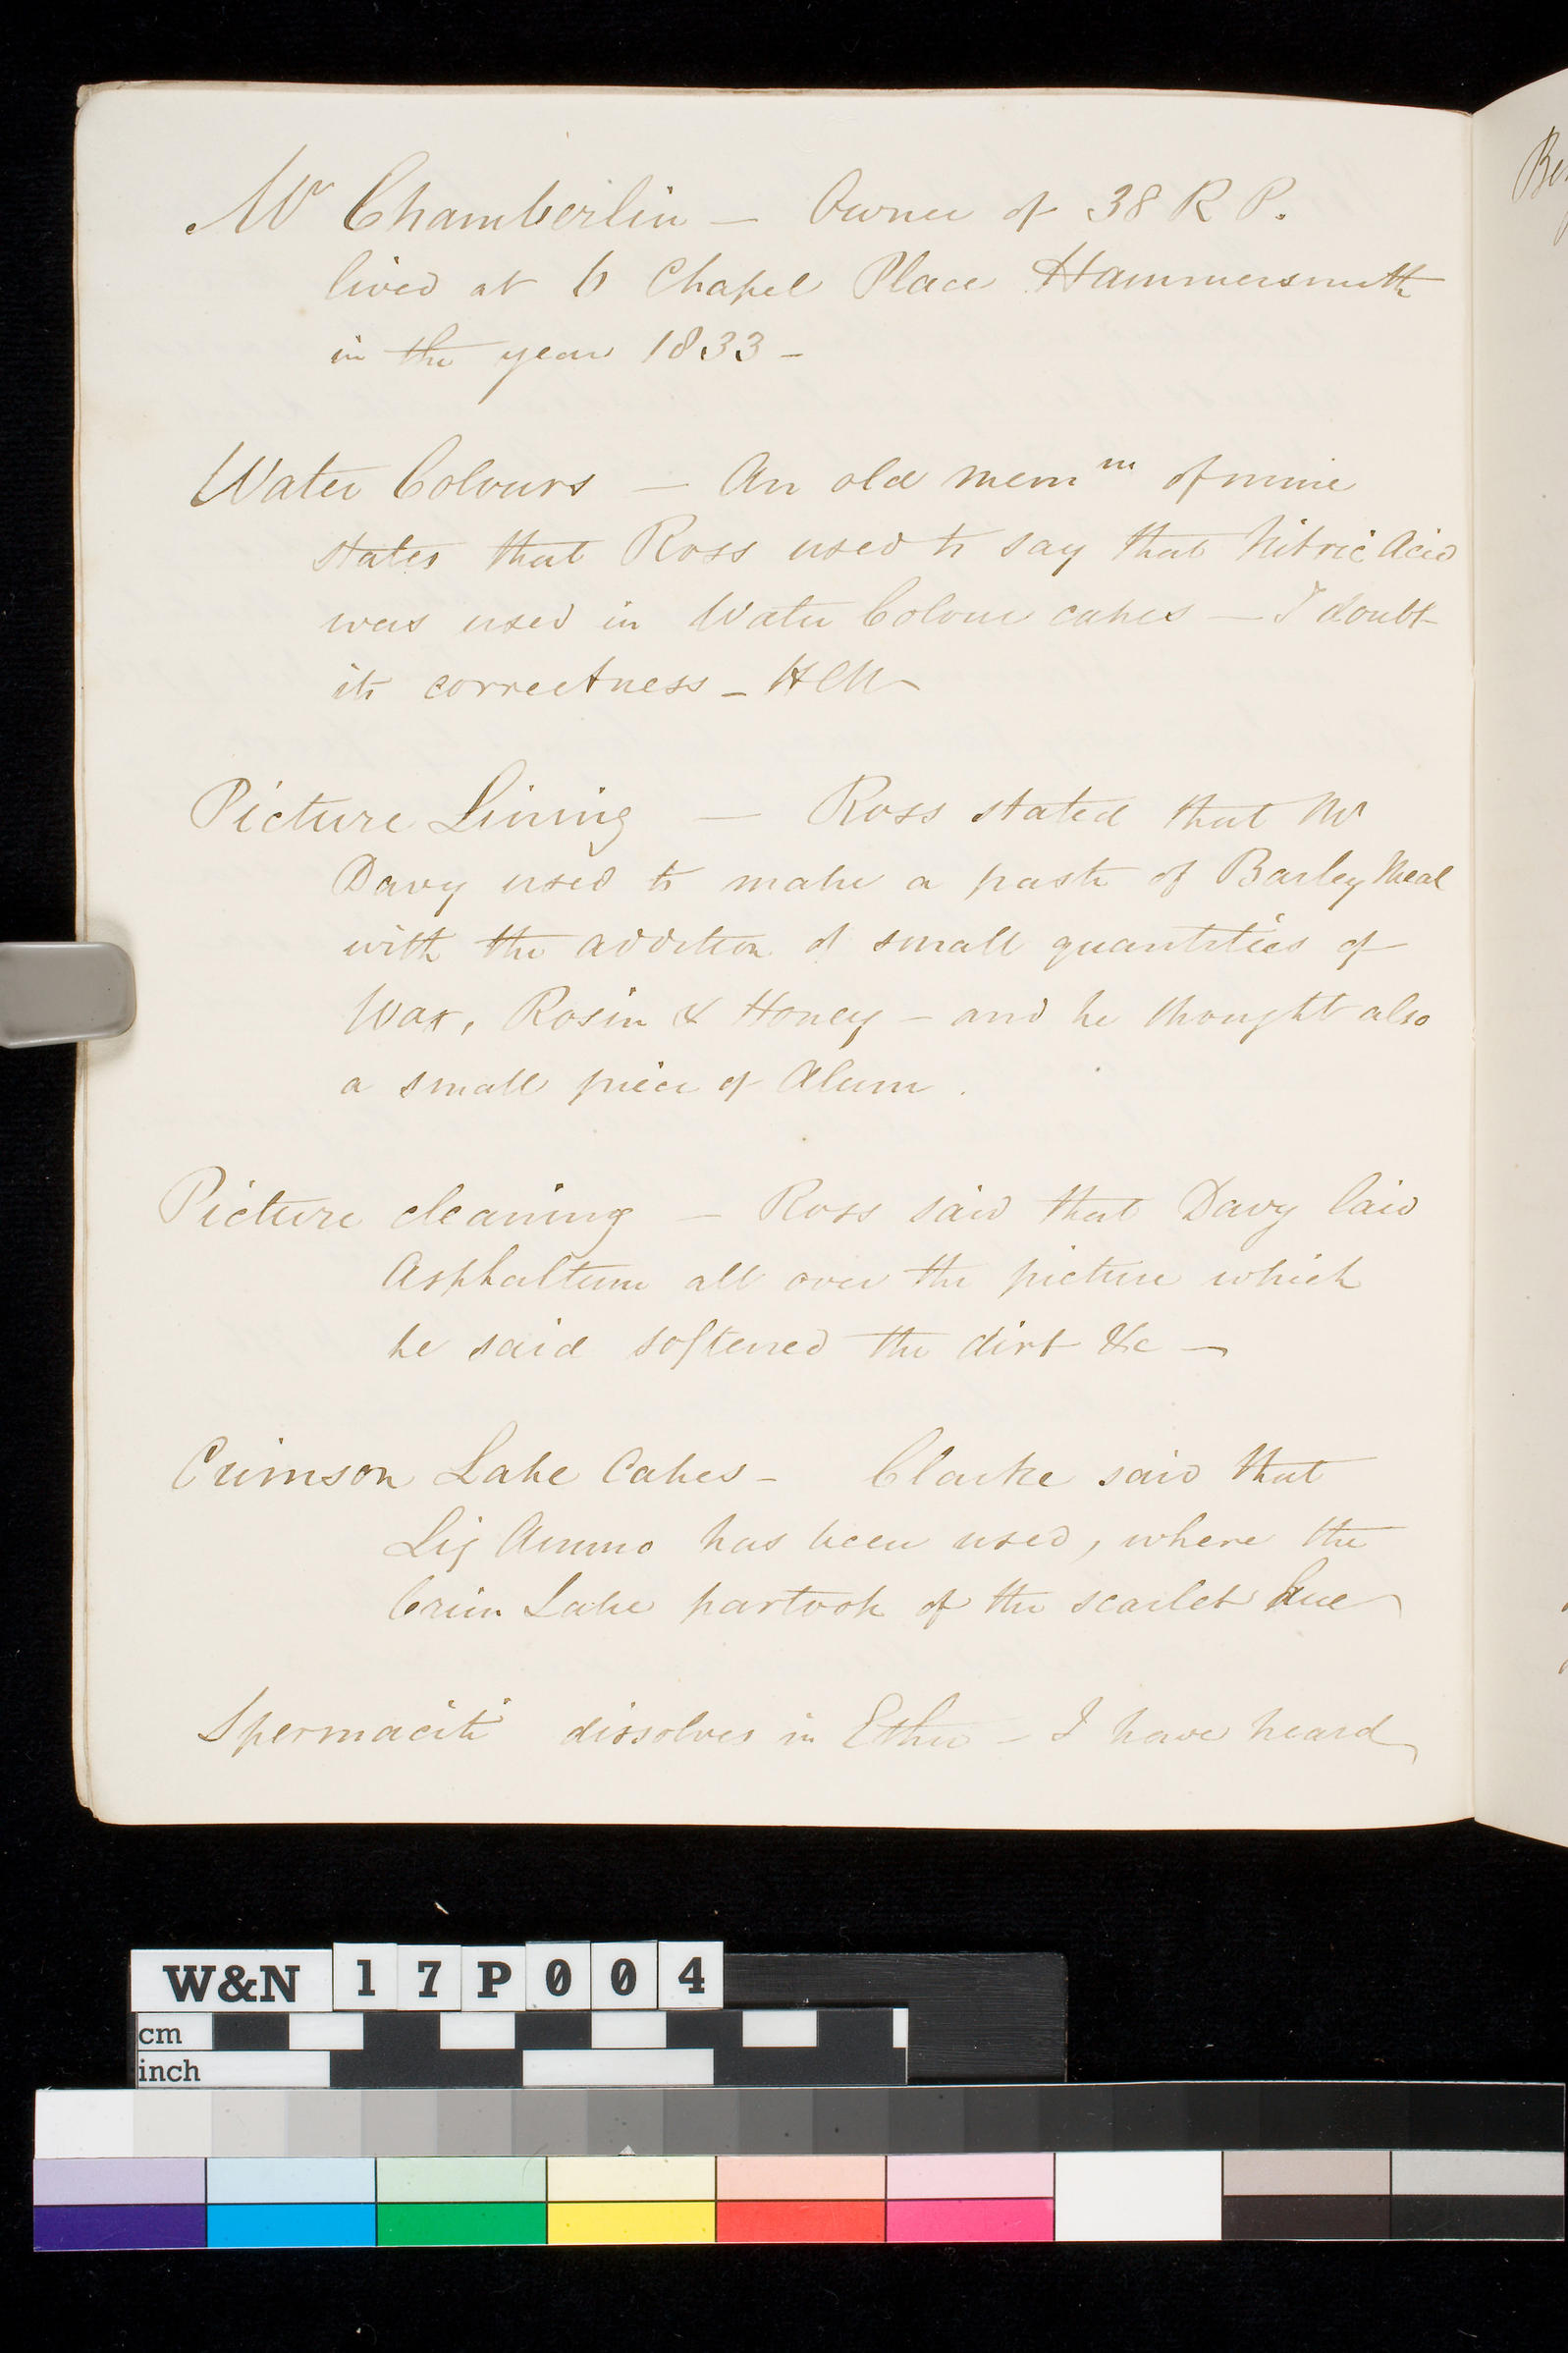 Mr Chamberlin — Owner of 38 R P.
lived at 6 Chapel Place Hammersmith
in the year 1833 –
Water Colours — An old mem^m of mine
states that Ross used to say that Nitric Acid
was used in Water Colour cakes — I doubt
its correctness – HCN
Picture Lining — Ross stated that Mr
Davy used to make a paste of Barley Meal
with the addition of small quantities of
Wax, Rosin & Honey – and he thought also
a small piece of Alum .
Picture cleaning — Ross said that Davy laid
Asphaltum all over the picture which
he said softened the dirt &c —
Crimson Lake Cakes – Clarke said that
Liq Ammo has been used, where the
Crim Lake partook of the scarlet hue
Spermaciti dissolves in Ether – I have heard
Be
W&N 17P004
cm
inch